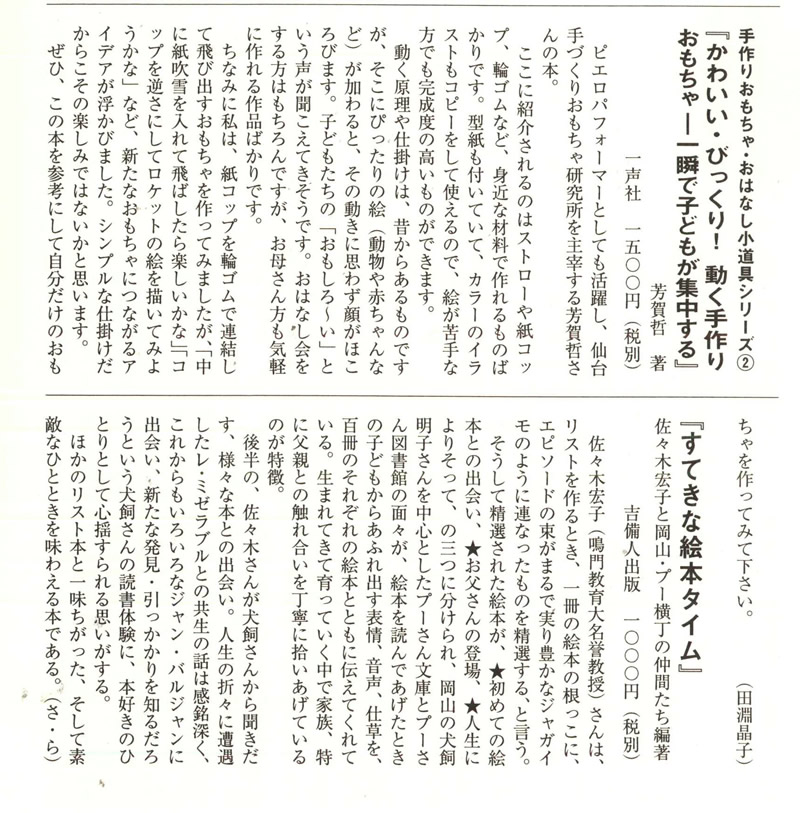 手作りおもちゃ・おはなし小道具シリーズ②
『かわいい・びっくり！ 動く手作り
おもちゃ―一瞬で子どもが集中する』
芳賀哲 著
一声社 一五〇〇円（税別）
ピエロパフォーマーとしても活躍し、仙台
手づくりおもちゃ研究所を主宰する芳賀哲さ
んの本。
ここに紹介されるのはストローや紙コッ
プ、輪ゴムなど、身近な材料で作れるものば
かりです。型紙も付いていて、カラーのイラ
ストもコピーをして使えるので、絵が苦手な
方でも完成度の高いものができます。
動く原理や仕掛けは、昔からあるものです
が、そこにぴったりの絵（動物や赤ちゃんな
ど）が加わると、その動きに思わず顔がほこ
ろびます。子どもたちの「おもしろ～い」と
いう声が聞こえてきそうです。おはなし会を
する方はもちろんですが、お母さん方も気軽
に作れる作品ばかりです。
ちなみに私は、紙コップを輪ゴムで連結し
て飛び出すおもちゃを作ってみましたが、「中
に紙吹雪を入れて飛ばしたら楽しいかな」「コ
ップを逆さにしてロケットの絵を描いてみよ
うかな」など、新たなおもちゃにつながるア
イデアが浮かびました。シンプルな仕掛けだ
からこその楽しみではないかと思います。
ぜひ、この本を参考にして自分だけのおも
ちゃを作ってみて下さい。 （田淵晶子）
『すてきな絵本タイム』
佐々木宏子と岡山・プー横丁の仲間たち編著
吉備人出版 一〇〇〇円（税別）
佐々木宏子（鳴門教育大名誉教授）さんは、
リストを作るとき、一冊の絵本の根っこに、
エピソードの束がまるで実り豊かなジャガイ
モのように連なったものを精選する、と言う。
そうして精選された絵本が、★初めての絵
本との出会い、★お父さんの登場、★人生に
よりそって、の三つに分けられ、岡山の犬飼
明子さんを中心としたプーさん文庫とプーさ
ん図書館の面々が、絵本を読んであげたとき
の子どもからあふれ出す表情、音声、仕草を、
百冊のそれぞれの絵本とともに伝えてくれて
いる。生まれてきて育っていく中で家族、特
に父親との触れ合いを丁寧に拾いあげている
のが特徴。
後半の、佐々木さんが犬飼さんから聞きだ
す、様々な本との出会い。人生の折々に遭遇
したレ・ミゼラブルとの共生の話は感銘深く、
これからもいろいろなジャン・バルジャンに
出会い、新たな発見・引っかかりを知るだろ
うという犬飼さんの読書体験に、本好きのひ
とりとして心揺すられる思いがする。
ほかのリスト本と一味ちがった、そして素
敵なひとときを味わえる本である。（さ・ら）